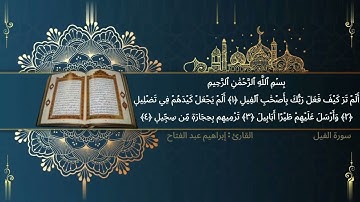 بِسْمِ ٱللَّهِ ٱلرَّحْمَٰنِ ٱلرَّحِيمِ
أَلَمْ تَرَ كَيْفَ فَعَلَ رَبُّكَ بِأَصْحَٰبِ ٱلْفِيلِ ﴿١﴾ أَلَمْ يَجْعَلْ كَيْدَهُمْ فِي تَضْلِيلٍ
﴿٢﴾ وَأَرْسَلَ عَلَيْهِمْ طَيْرًا أَبَابِيلَ ﴿٣﴾ تَرْمِيهِم بِحِجَارَةٍ مِّن سِجِّيلٍ ﴿٤﴾
سورة الفيل
القارئ : إبراهيم عبد الفتاح